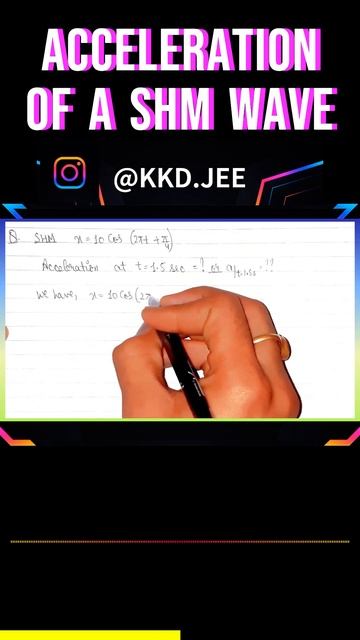 ACCELERATION
OF A SHM WAVE
@KKD.JEE
Q. SHM x = 10 Cos (2πt + π/4)
Acceleration at t = 1.5 sec = ? or a/t=1.5s = ??
We have, x = 10 Cos (2π